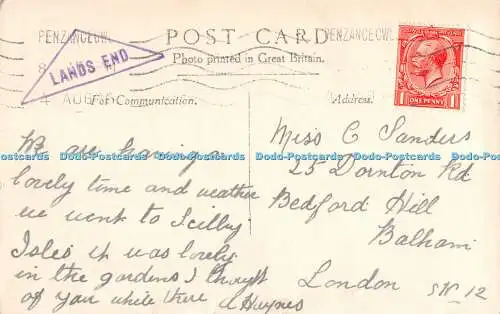 PENZANCE
LANDS END
4 AUG
POST CARD
Photo printed in Great Britain.
PENZANCE
For Communication.
Address.
ONE PENNY
We are having a
lovely time and weather
we went to Scilly
Isles it was lovely
in the gardens I thought
of you while there A Haynes
Miss C Sanders
25 Dornton Rd
Bedford Hill
Balham
London SW 12
Dodo-Postcards Dodo-Postcards Dodo-Postcards Dodo-Postcards Dodo-Postcards Dodo-Postcards